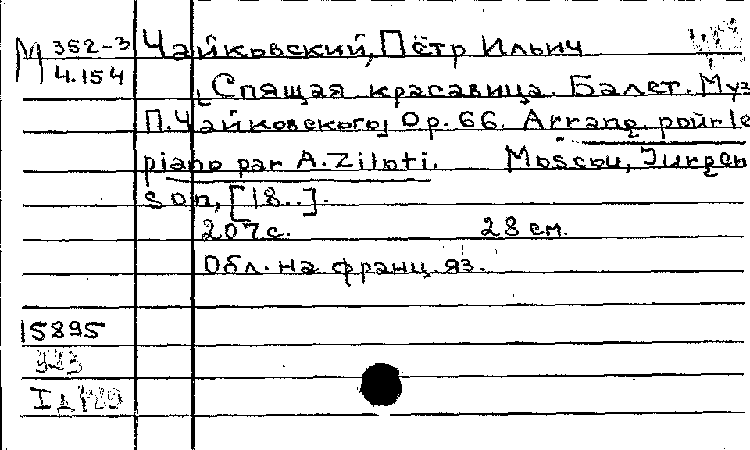 М 352-3 Чайковский, Пётр Ильич
4.154
[Спящая красавица. Балет. Муз
П.Чайковского] Op.66. Arrang. pour le
piano par A.Ziloti. Moscou, Jurgen
son, [18..].
207 с. 28 см.
Обл. на франц. яз.
15895